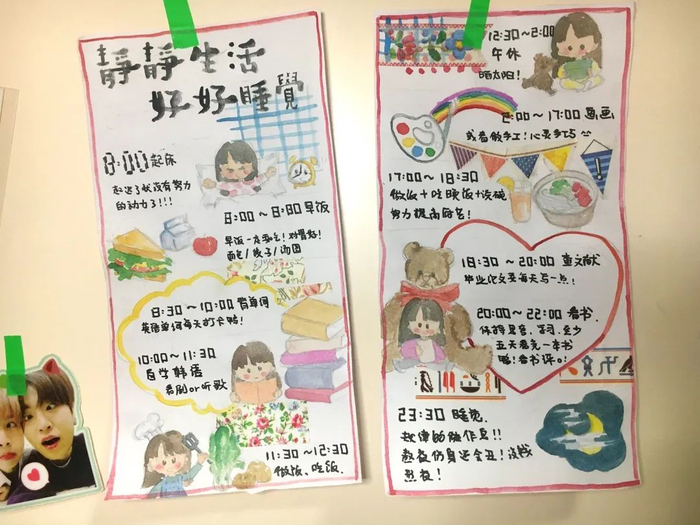 靜靜生活
好好睡覺
8:00起床
起迟了就没有努力
的动力了!!!
8:00~8:30早饭
早饭一定要吃!对胃好!
面包/饺子/汤团
8:30~10:00背单词
英语单词每天打卡鸭!
10:00~11:30
自学韩语
看剧or听歌
11:30~12:30
做饭、吃饭.
12:30~2:00
午休
晒太阳!
2:00~17:00画画
或者做手工!心灵手巧
17:00~18:30
做饭+吃晚饭+洗碗
努力提高厨艺!
18:30~20:00查文献
毕业论文要每天写一点!
20:00~22:00看书.
保持早睡、至少
五天看完一本书
哦!看书评o!
23:30睡觉.
规律的作息!!
熬夜伤身还会丑!没救